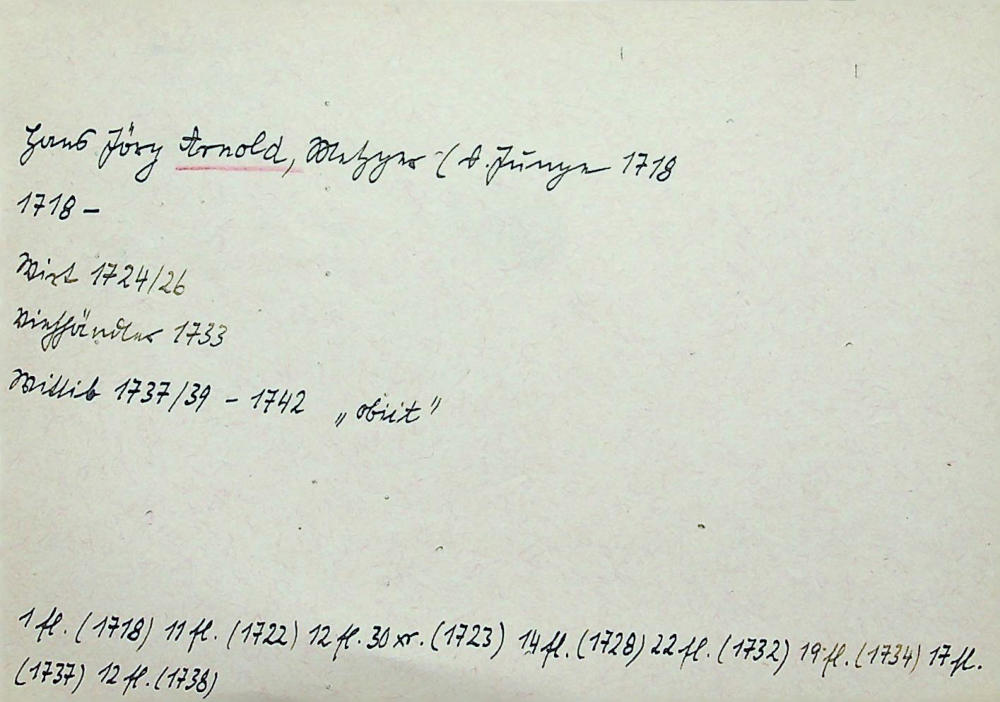 Hans Jörg Arnold, Metzger (d. Junge 1718
1718 -
Wirt 1724/26
Viehhändler 1733
Wittib 1737/39 - 1742 „obiit"
1 fl. (1718) 11 fl. (1722) 12 fl. 30 xr. (1723) 14 fl. (1728) 22 fl. (1732) 19 fl. (1734) 17 fl.
(1737) 12 fl. (1738)